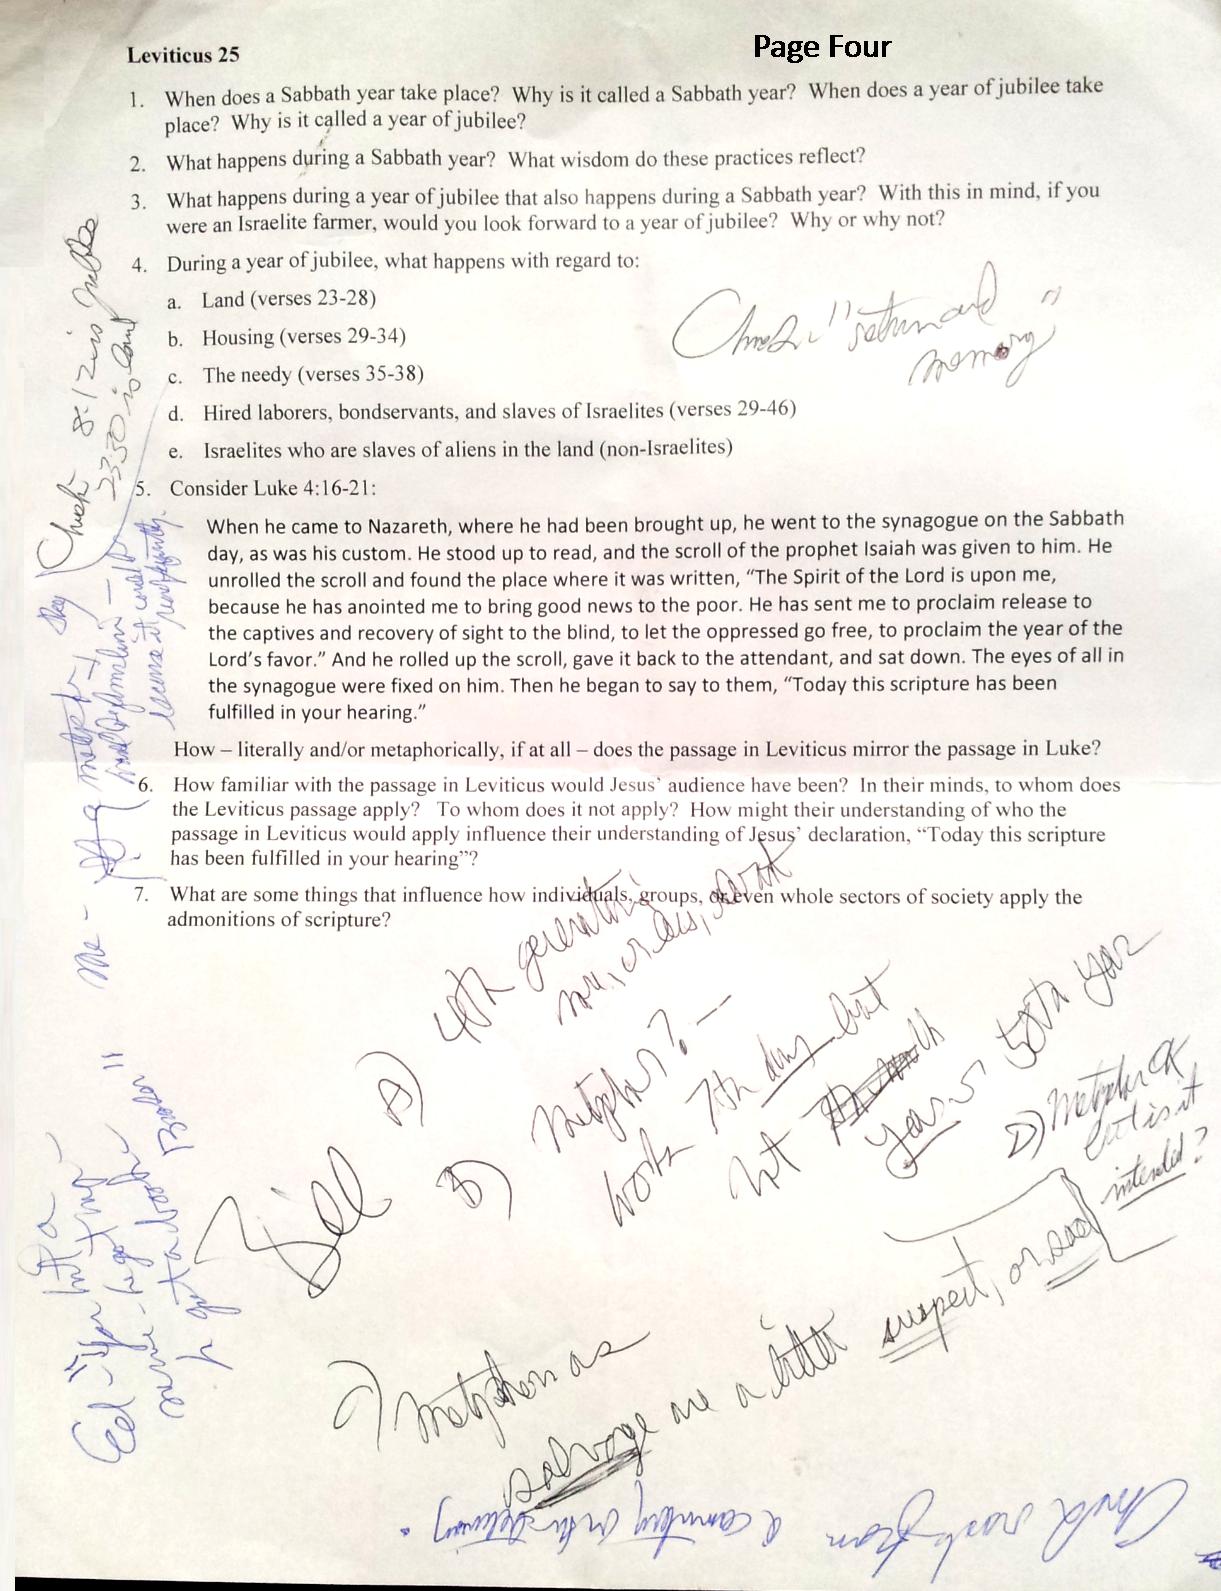 Page Four
Leviticus 25
1. When does a Sabbath year take place? Why is it called a Sabbath year? When does a year of jubilee take
place? Why is it called a year of jubilee?
2. What happens during a Sabbath year? What wisdom do these practices reflect?
3. What happens during a year of jubilee that also happens during a Sabbath year? With this in mind, if you
were an Israelite farmer, would you look forward to a year of jubilee? Why or why not?
4. During a year of jubilee, what happens with regard to:
a. Land (verses 23-28)
b. Housing (verses 29-34)
c. The needy (verses 35-38)
d. Hired laborers, bondservants, and slaves of Israelites (verses 29-46)
e. Israelites who are slaves of aliens in the land (non-Israelites)
"return and
memory"
5. Consider Luke 4:16-21:
When he came to Nazareth, where he had been brought up, he went to the synagogue on the Sabbath
day, as was his custom. He stood up to read, and the scroll of the prophet Isaiah was given to him. He
unrolled the scroll and found the place where it was written, “The Spirit of the Lord is upon me,
because he has anointed me to bring good news to the poor. He has sent me to proclaim release to
the captives and recovery of sight to the blind, to let the oppressed go free, to proclaim the year of the
Lord’s favor.” And he rolled up the scroll, gave it back to the attendant, and sat down. The eyes of all in
the synagogue were fixed on him. Then he began to say to them, “Today this scripture has been
fulfilled in your hearing.”
How – literally and/or metaphorically, if at all – does the passage in Leviticus mirror the passage in Luke?
6. How familiar with the passage in Leviticus would Jesus’ audience have been? In their minds, to whom does
the Leviticus passage apply? To whom does it not apply? How might their understanding of who the
passage in Leviticus would apply influence their understanding of Jesus’ declaration, “Today this scripture
has been fulfilled in your hearing”?
7. What are some things that influence how individuals, groups, or even whole sectors of society apply the
admonitions of scripture?
8:12 is Jubilee
23:50 is
Me -
Bill
A) 4th generation
more, or less,
B) Metaphor? -
works 7th day but
not
year or 50th year
D) Metaphor OK
but is it
intended?
C) Metaphors as
salvage are a bitter
suspect, or sad
Ed - "You hit a